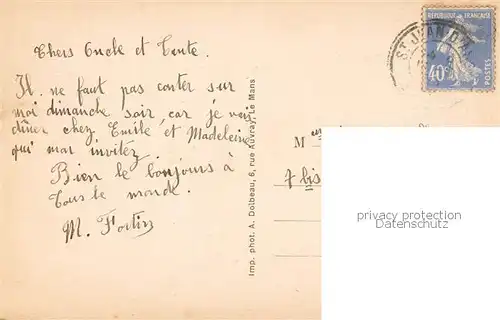 Chers Oncle et Tente.
Il ne faut pas conter sur
moi dimanche soir car je vais
dîner chez Emile et Madeleine
qui mon invitez.
Bien le bonjours à
Tous le monde.
M. Fortin
Imp. phot. A. Dolbeau, 6, rue Auvray, Le Mans
REPUBLIQUE FRANÇAISE
40c
POSTES
ST JEAN
M
7 bis
privacy protection
Datenschutz